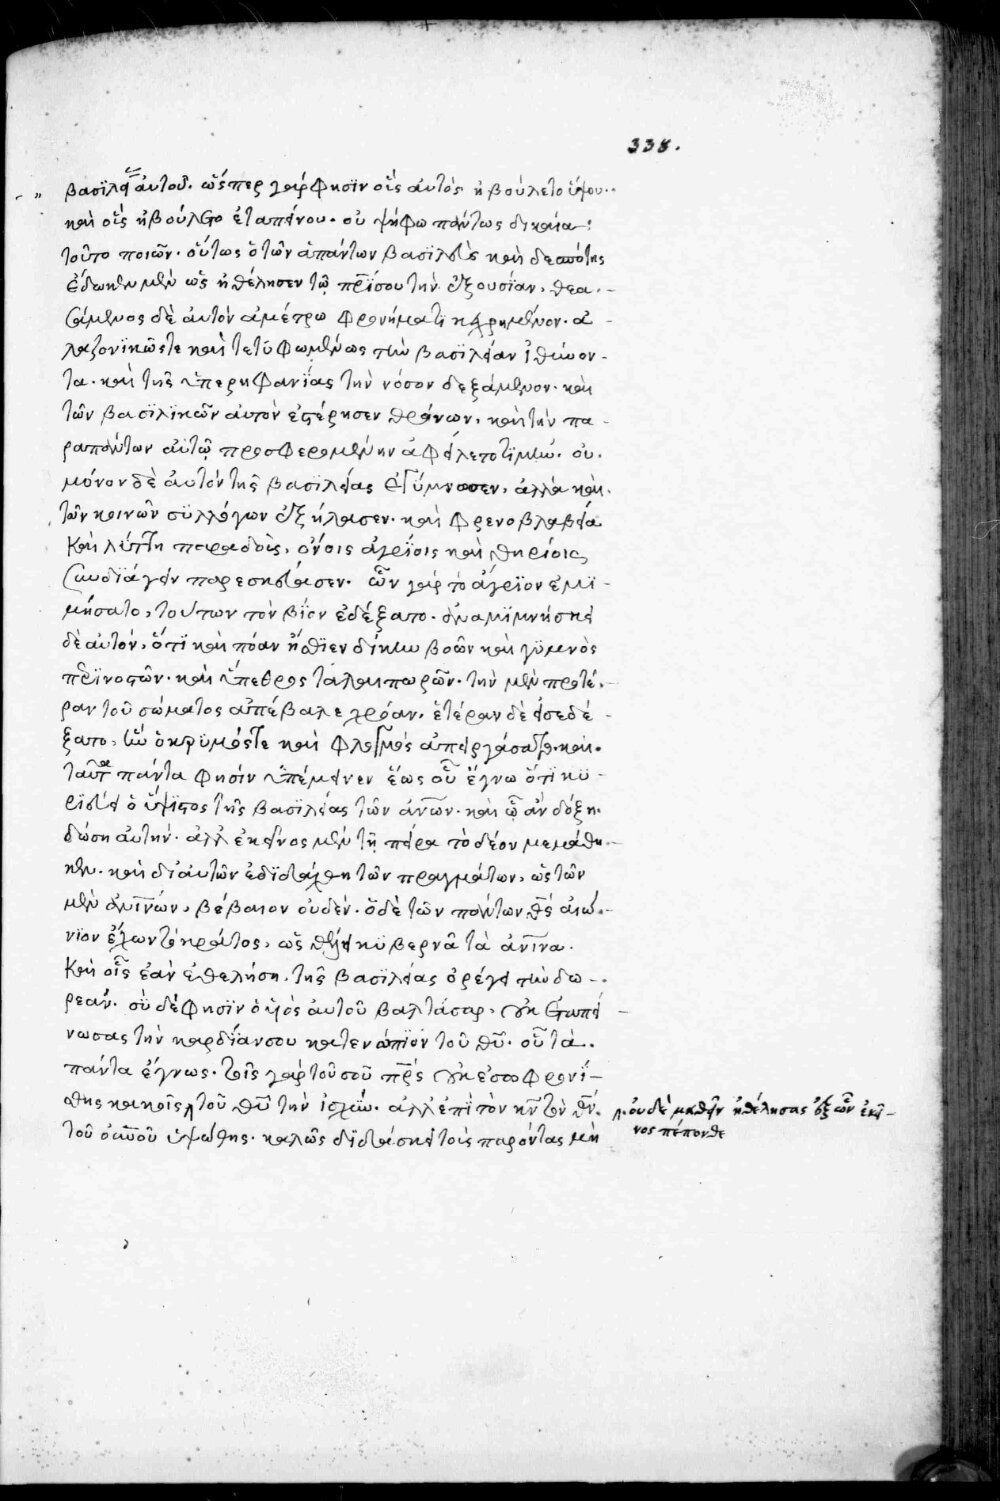 338.
βασϊλεία αὐτοῦ. ὥσπερ γάρ φησϊν οἷς αὐτὸς ἠβούλετο ὕψου.
καὶ οἷς ἠβούλετο ἐταπείνου. οὐ ψήφω πάντως δικαία
τοῦτο ποιῶν. οὕτως ὁ τῶν ἁπάντων βασϊλεὺς καὶ δεσπότης
ἔδωκεν μὲν ὡς ἠθέλησεν τῶ πρΐ σου τὴν ἐξουσίαν, θεα-
σάμενος δὲ αὐτὸν ἀμέτρω φρονήματι κεχρημένον. ἀ-
λαζονϊκῶς τε καὶ τετυφωμένως τὴν βασϊλείαν ἰθύνον-
τα. καὶ τῆς ὑπερηφανίας τὴν νόσον δεξάμενον. καὶ
τῶν βασϊλϊκῶν αὐτὸν ἐστέρησεν θρόνων, καὶ τὴν πα-
ρα πάντων αὐτῶ προσφερομένην ἀφείλετο τϊμήν. οὐ
μόνον δὲ αὐτὸν τῆς βασϊλείας ἐγύμνωσεν, ἀλλὰ καὶ
τῶν κοινῶν συλλόγων ἐξήλασεν. καὶ φρενοβλαβεία
καὶ λύττη παραδοὺς, ὀνάοις ἀγρίοις καὶ θηρίοις
συνδϊάγειν παρεσκεύασεν. ὧν γὰρ τὸ ἄγρϊον ἐμϊ-
μήσατο, τούτων τὸν βίον ἐδέξατο. ἀναμϊμνήσκει
δὲ αὐτὸν, ὅτϊ καὶ πόαν ἤσθϊεν δίκην βοῶν καὶ γϋμνὸς
περϊνοστῶν. καὶ ὕπεθρος ταλαιπωρῶν. τὴν μὲν προτέ-
ραν τοῦ σώματος ἀπέβαλε χρόαν, ἑτέραν δὲ εἰσεδέ-
ξατο, ἣν ὁ κρυμός τε καὶ φλογμὸς ἀπειργάσατο. καὶ
ταῦτα πάντα φησὶν ὑπέμεινεν ἕως οὗ ἔγνω ὅτϊ κϋ-
ριεύει ὁ ὕψϊστος τῆς βασϊλείας τῶν ἀνων. καὶ ᾧ ἂν δόξη
δώση αὐτήν. ἀλλ ἐκεῖνος μὲν τῆ πείρα τὸ δέον μεμάθη-
κεν. καὶ δι αὐτῶν ἐδϊδάχθη τῶν πραγμάτων, ὡς τῶν
μὲν ἀνίνων, βέβαιον οὐδέν. ὁ δὲ τῶν πάντων θς αἰώ-
νϊον ἔχων τὸ κράτος, ὡς θέλει κϋβερνᾶ τὰ ἀνινα.
καὶ οἷς ἐὰν ἐθελήση, τῆς βασϊλείας ὀρέγει τὴν δω-
ρεάν. σὺ δέ φησϊν ὁ υἱὸς αὐτοῦ βαλτάσαρ, οὐκ ἐταπεί-
νωσας τὴν καρδίαν σου κατενώπϊον τοῦ θυ. οὗ τὰ
πάντα ἔγνως. τοῖς γὰρ τοῦ σοῦ πρς οὐκ ἐσωφρονί-
σθης κακοῖς τοῦ θυ τὴν ἰσχύν. ἀλλ ἐπὶ τὸν κν τὸν θν
τοῦ οὐνοῦ ὑψώθης. καλῶς διδάσκει τοὺς παρόντας μὴ
οὐδὲ μαθεῖν ἠθέλησας ἐξ ὧν ἐκεῖ-
νος πέπονθε